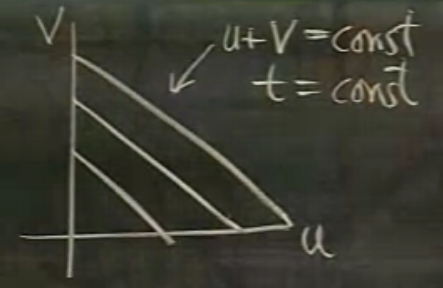 V
u+V=const
t=const
u